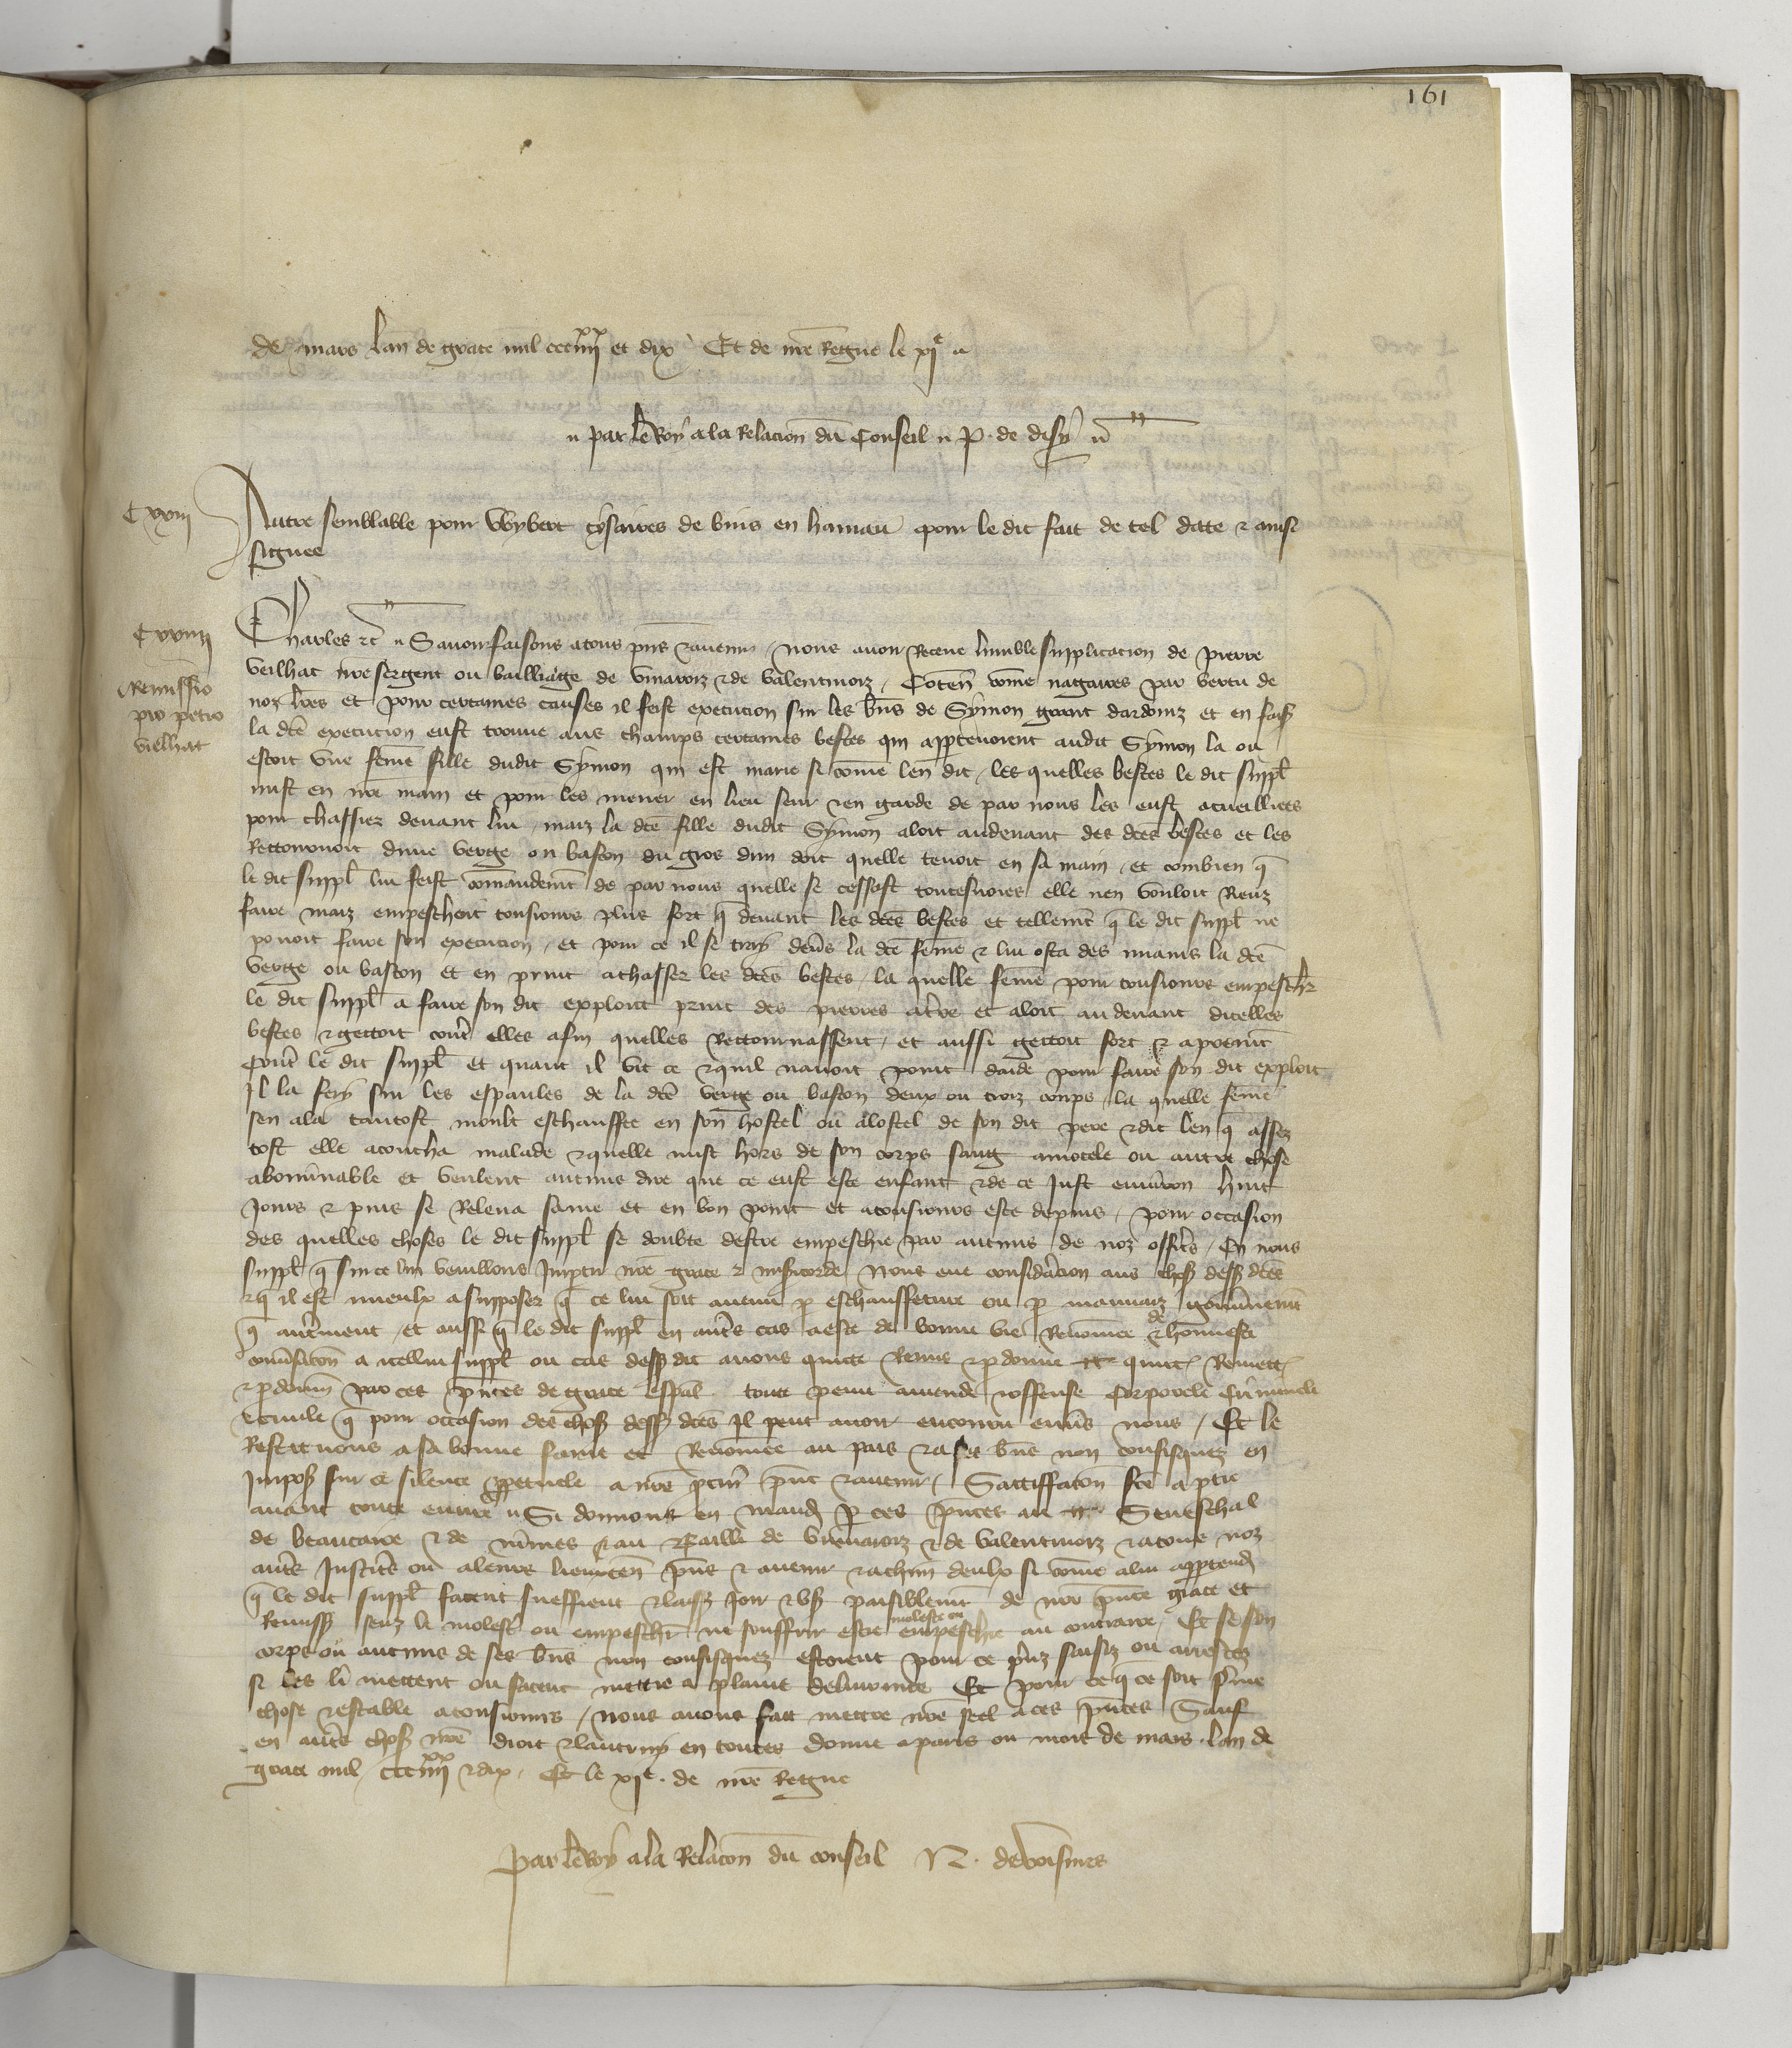 161
de mars lan de grace mil ccc iiii xx et dix Et de nr̃e Regne le xi e
par le Roy a la Relacion du Conseil P. de disy
C xxiii
Autre semblable pour Wybert de binis en hainau pour le dit fait de tel date & ainsi
signee
C xxiiii
Remissio
pro petro
vielhat
Charles &c̃ Savoir faisons a tous p̃ns & avenir / nous avoir Receue lumble supplicacion de pierre
veilhat nr̃e sergent ou bailliage de vivarois & de valentinois / Conten̄ cõme nagaires par vertu de
noz lr̃es et pour certaines causes il feist execucion sur les bñs de Symon et en fais̃
la dc̃e execucion eust trouve aus champs certaines bestes qui appartenoient audit Symon la ou
estoit une fem̃e fille dudit Symon qui est marie si cõme len dit / les quelles bestes le dit suppl̃
mist en nr̃e main et pour les mener en lieu seur & en garde de par nous les eust acueillies
pour chassier devant lui / maiz la dc̃e fille dudit Symon aloit audevant des dc̃es bestes et les
Rettornoit dune verge ou baston du gros dun doit quelle tenoit en sa main / et combien q̃
le dit suppl̃ lui feist cõmandem̃t de par nous quelle se cessast toutesvoies elle nen vouloit Riens
faire maiz empeschoit tousiours plus fort q̃ devant les dc̃es bestes et tellem̃t q̃ le dit suppl̃ ne
povoit faire son execucion / et pour ce il se tray dev̑s la dc̃e fem̃e & lui osta des mains la dc̃e
verge ou baston et en print a chasser les dc̃es bestes / la quelle fem̃e pour tousiours empesch̃r
le dit suppl̃ a faire son dit exploit print des pierres a tr̃e et aloit au devant dicelles
bestes & gettoit cont̃ elles afin quelles Rettournassent / et aussi gettoit fort & aprem̃t
Cont̃ le dit suppl̃ et quant il vit ce & quil navoit point daide pour faire son dit exploit
Il la fery sur les espaules de la dc̃e verge ou baston deux ou trois coups / la quelle fem̃e
sen ala tantost moult eschauffee en son hostel ou a lostel de son dit pere & dit len q̃ assez
tost elle acoucha malade & quelle mist hors de son corps sang amocele ou autre chose
abominable et veulent aucuns dire que ce eust este enfant & de ce Just environ huit
Jours & puis se Releva saine et en bon point et a tousiours este depuis / pour occasion
des quelles choses le dit suppl̃ se doubte destre empeschie par aucuns de noz offic̃rs / En nous
suppl̃ q̃ sur ce lui veuillons Imp̃tir nr̃e grace & mis̃icorde Nous eue considerãcion aus chos̃ dess̃ dc̃es
& q̃ il est mieulx a supposer q̃ ce lui soit avenu p̃ eschauffeture ou p̃ mauvaiz gouv̑nem̃t
q̃ autrement / et aussi q̃ le dit suppl̃ en aut̃s cas a este de bonne vie Renõmee & de honneste
conv̑sacõn a icellui suppl̃ ou cas dess̃ dit avons quitte Remis & p̃donne quitt̃ Remett̃
& p̃donn̄ par ces p̃ntes de grace esp̃al toute peine amende & offense Corporele Criminele
& civile q̃ pour occasion des chos̃ dess̃ dc̃es Il peut avoir encouru env̑s nous / Et le
Restituons a sa bonne fame et Renõmee au pais & a ses bñs non confisquez en
Impos̃ sur ce silence p̃petuele a nr̃e pc̃ur p̃nt & avenir / Sattiffacõn fc̃e a p̃tie
avant toute euvre Si donnons en mand̃ p̃ ces p̃ntes au Seneschal
de beaucaire & de nimes & au Bailli de vivarois & de valentinois & a tous noz
aut̃s Justic̃rs ou a leurs lieuten̄ p̃ns & avenir & a chũn deulx si cõme a lui app̃tend̃
q̃ le dit suppl̃ facent sueffrent & laiss̃ Joir & us̃ paisiblem̃t de nr̃e p̃nte grace et
Remiss̃ senz le molest̃ ou empesch̃r ne souffrir estre moleste ou empeschie au contraire / Et se son
corps ou aucuns de ses bñs non confisquez estoient pour ce priz saisiz ou arrestez
si les li mettent ou facent mettre a plaine delivrance Et pour ce q̃ ce soit ferme
chose & estable a tousiours / nous avons fait mettre nr̃e seel a ces p̃ntes Sauf
en autr̃e chos̃ nr̃e droit & lautruy en toutes donne a paris ou mois de mars lan de
grace mil ccc iiii xx & dix / Et le xi e de nr̃e Regne
Par le Roy a la Relacõn du conseil N. de voisines